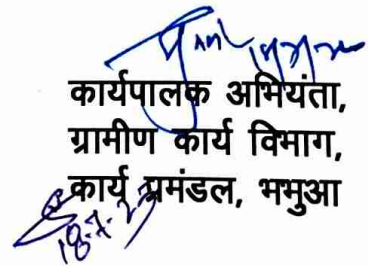 कार्यपालक अभियंता,
ग्रामीण कार्य विभाग,
कार्य प्रमंडल, भभुआ
18.7.23